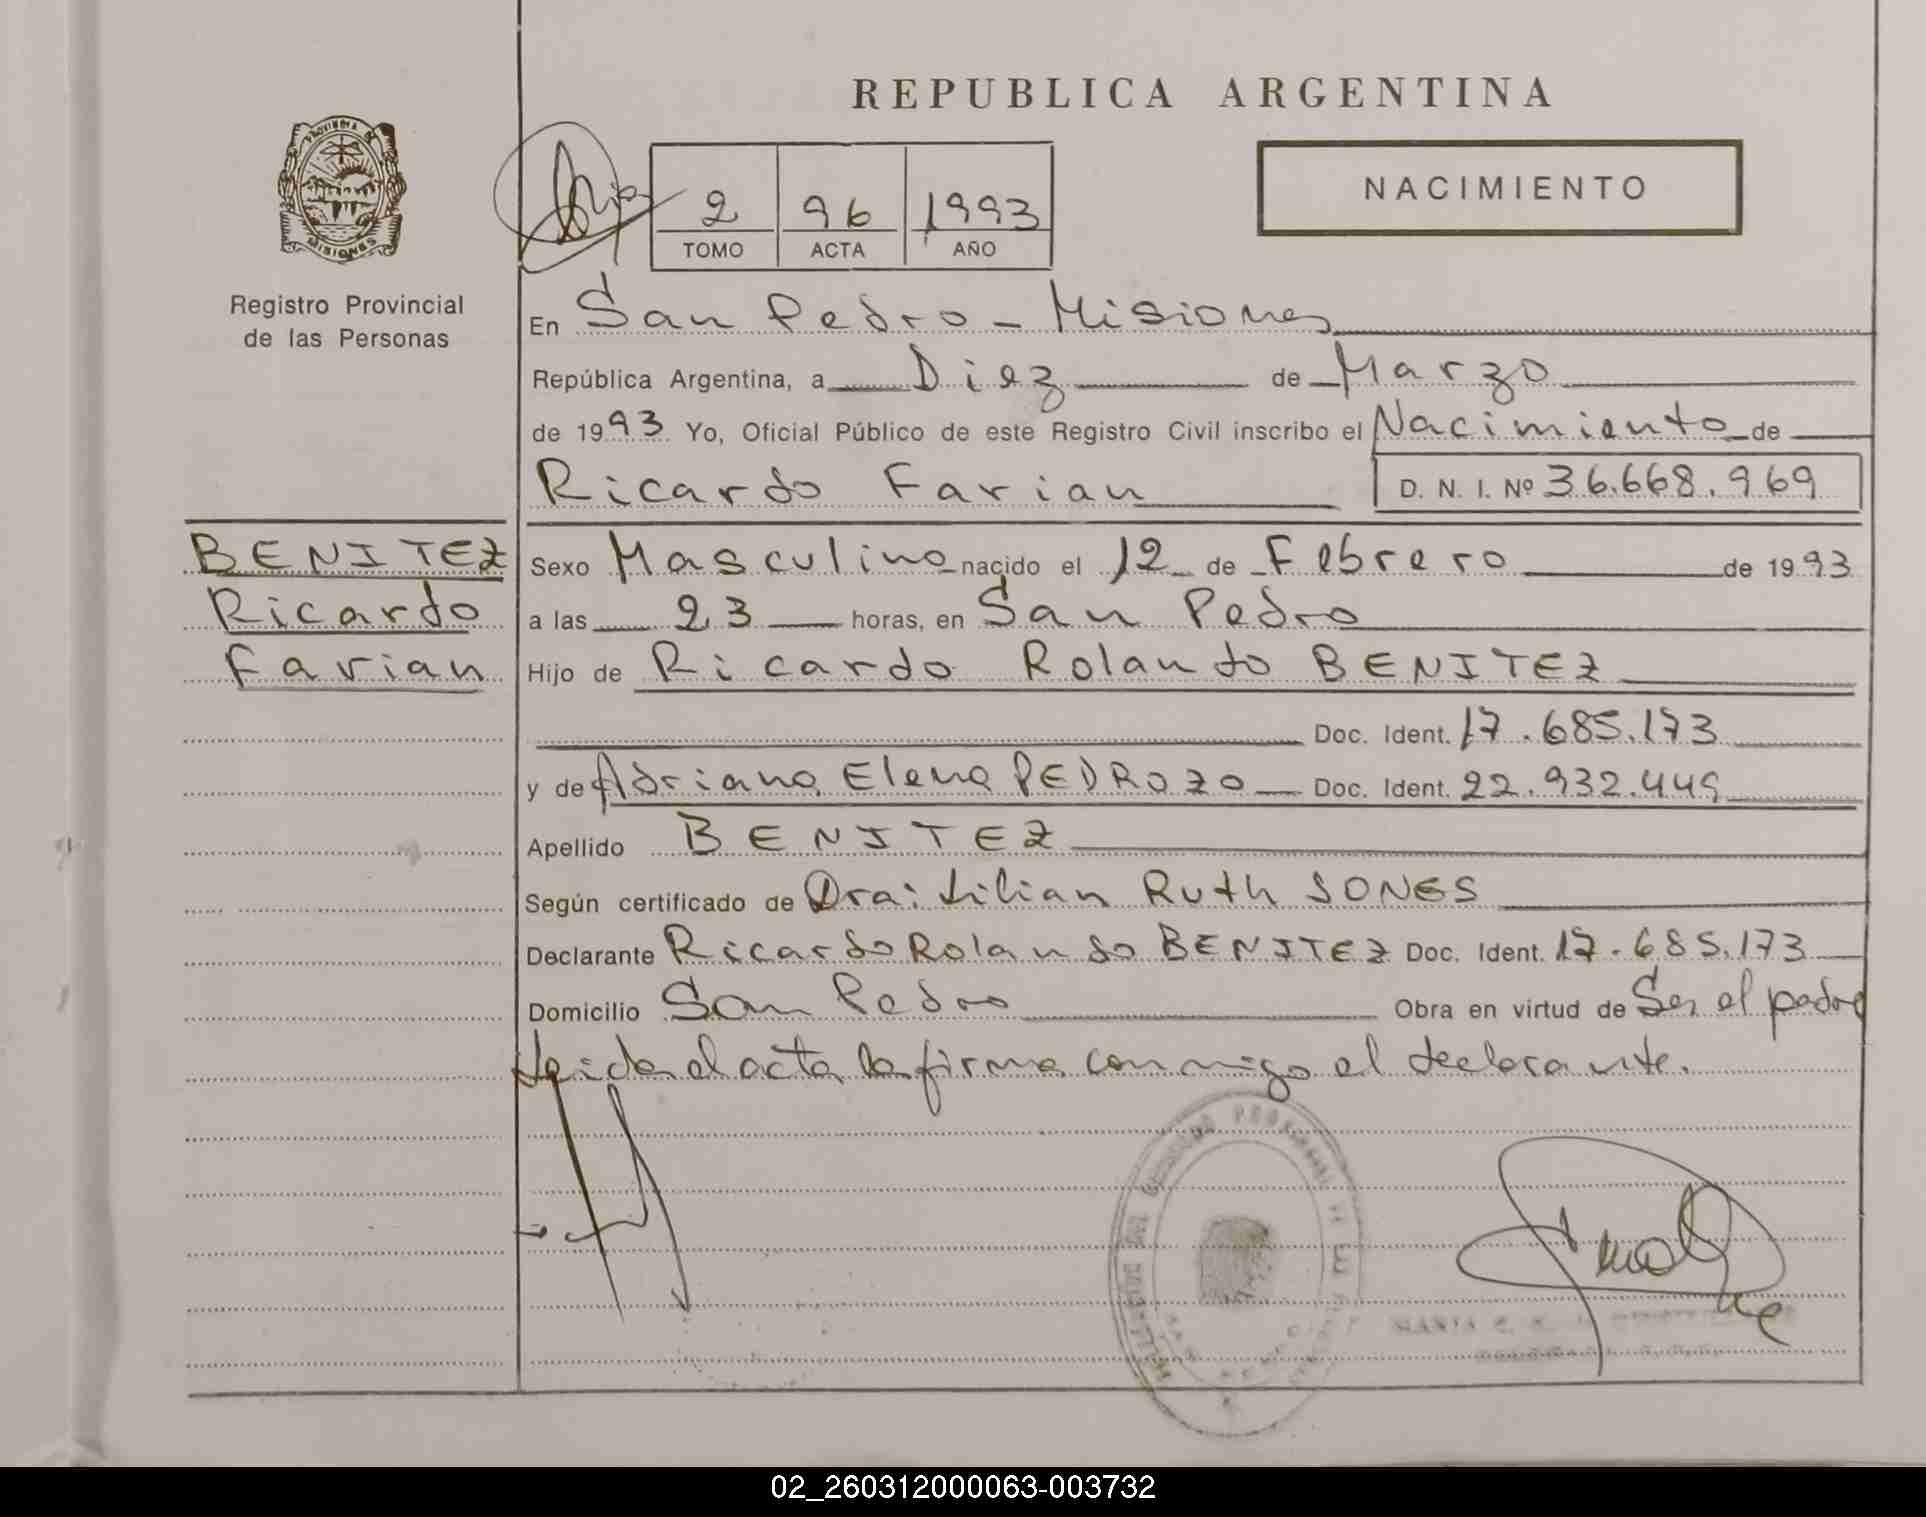 REPUBLICA ARGENTINA
PROVINCIA DE
MISIONES
Registro Provincial
de las Personas
2 96 1993
TOMO ACTA AÑO
NACIMIENTO
En San Pedro - Misiones
República Argentina, a Diez de Marzo
de 1993 Yo, Oficial Público de este Registro Civil inscribo el Nacimiento de
Ricardo Farian D. N. I. Nº 36.668.969
BENITEZ
Ricardo
Farian
Sexo Masculino nacido el 12 de Febrero de 1993
a las 23 horas, en San Pedro
Hijo de Ricardo Rolando BENITEZ
Doc. Ident. 17.685.173
y de Adriana Elena PEDROZO Doc. Ident. 22.932.449
Apellido BENITEZ
Según certificado de Dra: Lilian Ruth JONES
Declarante Ricardo Rolando BENITEZ Doc. Ident. 17.685.173
Domicilio San Pedro Obra en virtud de Ser el padre
Leida el acta la firma conmigo el declarante.
02_260312000063-003732